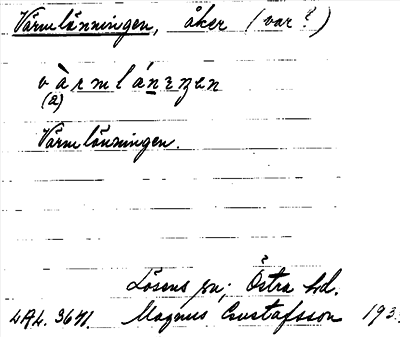 Värmlänningen, åker (var?)
vàrmlánɪŋen
(a)
Värmlänningen.
Lösens sn; Östra hd.
LAL. 3671. Magnus Gustafsson 193